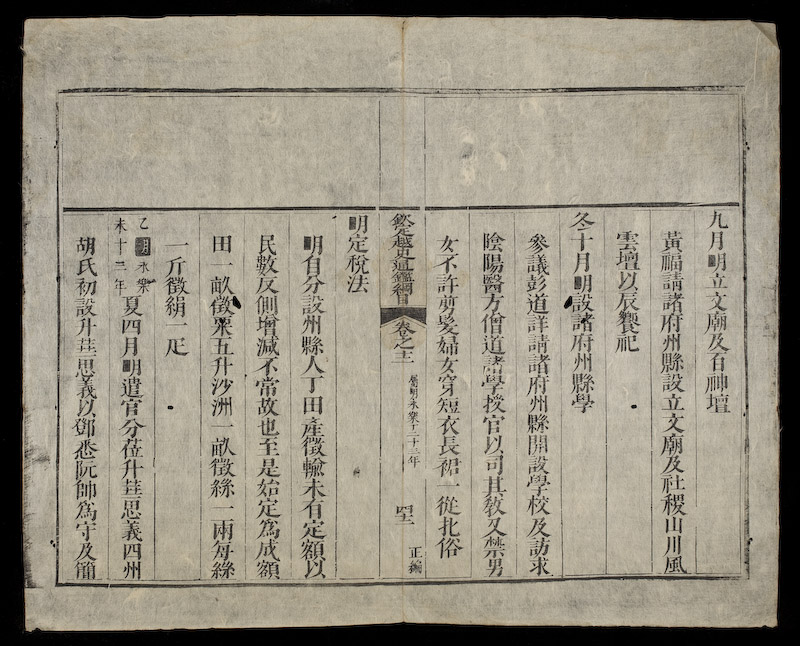 九月明立文廟及百神壇
黃福請諸府州縣設立文廟及社稷山川風
雲壇以辰饗祀
冬十月明設諸府州縣學
參議彭道詳請諸府州縣開設學校及訪求
陰陽醫方僧道諸學授官以司其敎又禁男
女不許剪髮婦女穿短衣長裙一從北俗
欽定越史通鑑綱目 卷之十二 屬明永樂十二十三年 正編
明定稅法
明自分設州縣人丁田產徵輸未有定額以
民數反側增減不常故也至是始定爲成額
田一畝徵粟五升沙洲一畝徵絲一兩每絲
一斤徵絹一疋
乙未 明永樂十三年 夏四月明遣官分蒞升華思義四州
胡氏初設升華思義以鄧悉阮帥爲守及簡